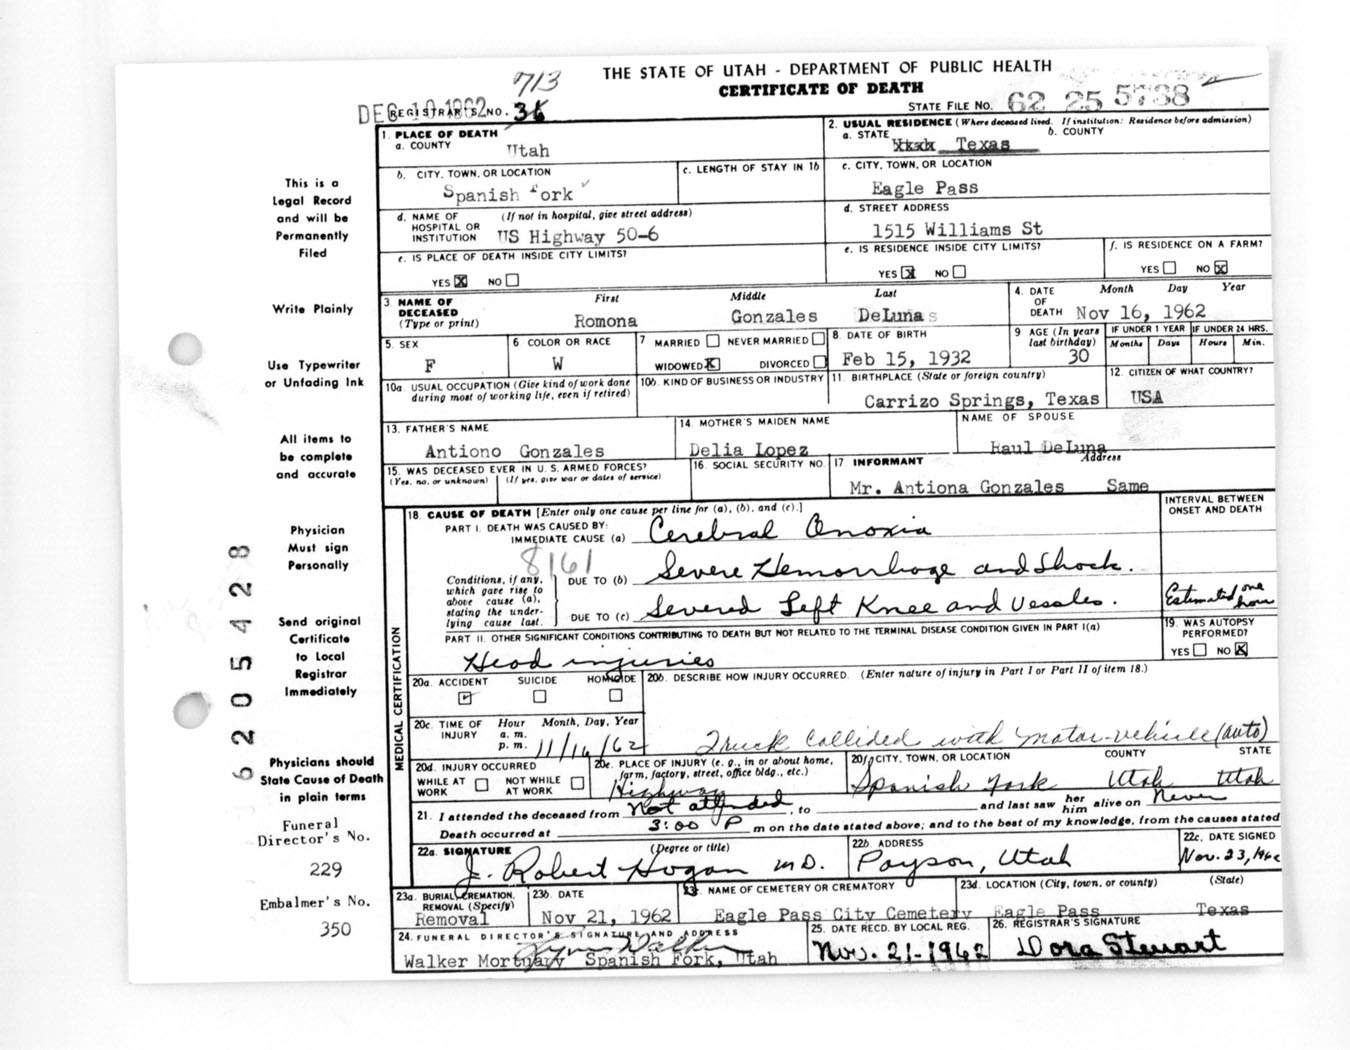 THE STATE OF UTAH - DEPARTMENT OF PUBLIC HEALTH
CERTIFICATE OF DEATH
713
DEC 10 1962 REGISTRAR'S NO. 36
STATE FILE NO. 62 25 5738
1. PLACE OF DEATH
a. COUNTY Utah
2. USUAL RESIDENCE (Where deceased lived. If institution: Residence before admission)
a. STATE Texas b. COUNTY
b. CITY, TOWN, OR LOCATION Spanish Fork
c. LENGTH OF STAY IN 1b
c. CITY, TOWN, OR LOCATION Eagle Pass
d. NAME OF HOSPITAL OR INSTITUTION (If not in hospital, give street address) US Highway 50-6
d. STREET ADDRESS 1515 Williams St
e. IS PLACE OF DEATH INSIDE CITY LIMITS? YES X NO
e. IS RESIDENCE INSIDE CITY LIMITS? YES X NO
f. IS RESIDENCE ON A FARM? YES NO X
3. NAME OF DECEASED (Type or print) First Middle Last
Romona Gonzales DeLunas
4. DATE OF DEATH Month Day Year
Nov 16, 1962
5. SEX F
6 COLOR OR RACE W
7 MARRIED NEVER MARRIED WIDOWED X DIVORCED
8. DATE OF BIRTH Feb 15, 1932
9 AGE (In years last birthday) 30
IF UNDER 1 YEAR Months Days
IF UNDER 24 HRS. Hours Min.
10a. USUAL OCCUPATION (Give kind of work done during most of working life, even if retired)
10b. KIND OF BUSINESS OR INDUSTRY
11. BIRTHPLACE (State or foreign country) Carrizo Springs, Texas
12. CITIZEN OF WHAT COUNTRY? USA
13. FATHER'S NAME Antiono Gonzales
14. MOTHER'S MAIDEN NAME Delia Lopez
NAME OF SPOUSE Raul DeLuna
15. WAS DECEASED EVER IN U.S. ARMED FORCES?
(Yes, no, or unknown) (If yes, give war or dates of service)
16. SOCIAL SECURITY NO.
17. INFORMANT Address
Mr. Antiona Gonzales Same
MEDICAL CERTIFICATION
18. CAUSE OF DEATH [Enter only one cause per line for (a), (b), and (c).]
INTERVAL BETWEEN ONSET AND DEATH
PART I. DEATH WAS CAUSED BY:
IMMEDIATE CAUSE (a) Cerebral Anoxia
8161
Conditions, if any, which gave rise to above cause (a), stating the underlying cause last.
DUE TO (b) Severe Hemorrhage and Shock.
DUE TO (c) Severed Left Knee and Vessles. Estimated one hour
PART II. OTHER SIGNIFICANT CONDITIONS CONTRIBUTING TO DEATH BUT NOT RELATED TO THE TERMINAL DISEASE CONDITION GIVEN IN PART I(a)
Head injuries
19. WAS AUTOPSY PERFORMED? YES NO X
20a. ACCIDENT SUICIDE HOMICIDE
20b. DESCRIBE HOW INJURY OCCURRED. (Enter nature of injury in Part I or Part II of item 18.)
Truck collided with motor-vehicle (auto)
20c. TIME OF INJURY Hour Month, Day, Year
a. m.
p. m. 11/16/62
20d. INJURY OCCURRED
WHILE AT WORK NOT WHILE AT WORK
20e. PLACE OF INJURY (e. g., in or about home, farm, factory, street, office bldg., etc.)
Highway
20f. CITY, TOWN, OR LOCATION COUNTY STATE
Spanish Fork Utah Utah
21. I attended the deceased from Not attended, to and last saw her him alive on Never
Death occurred at 3:00 P m on the date stated above; and to the best of my knowledge, from the causes stated
22a. SIGNATURE (Degree or title)
J. Robert Hogan M.D.
22b. ADDRESS Payson, Utah
22c. DATE SIGNED Nov. 23, 1962
23a. BURIAL, CREMATION, REMOVAL (Specify) Removal
23b. DATE Nov 21, 1962
23c. NAME OF CEMETERY OR CREMATORY Eagle Pass City Cemetery
23d. LOCATION (City, town, or county) (State)
Eagle Pass Texas
24. FUNERAL DIRECTOR'S SIGNATURE AND ADDRESS
Walker Mortuary Spanish Fork, Utah
25. DATE RECD. BY LOCAL REG. Nov. 21-1962
26. REGISTRAR'S SIGNATURE Dora Stewart
This is a
Legal Record
and will be
Permanently
Filed
Write Plainly
Use Typewriter
or Unfading Ink
All items to
be complete
and accurate
Physician
Must sign
Personally
Send original
Certificate
to Local
Registrar
Immediately
Physicians should
State Cause of Death
in plain terms
Funeral
Director's No.
229
Embalmer's No.
350
6205428